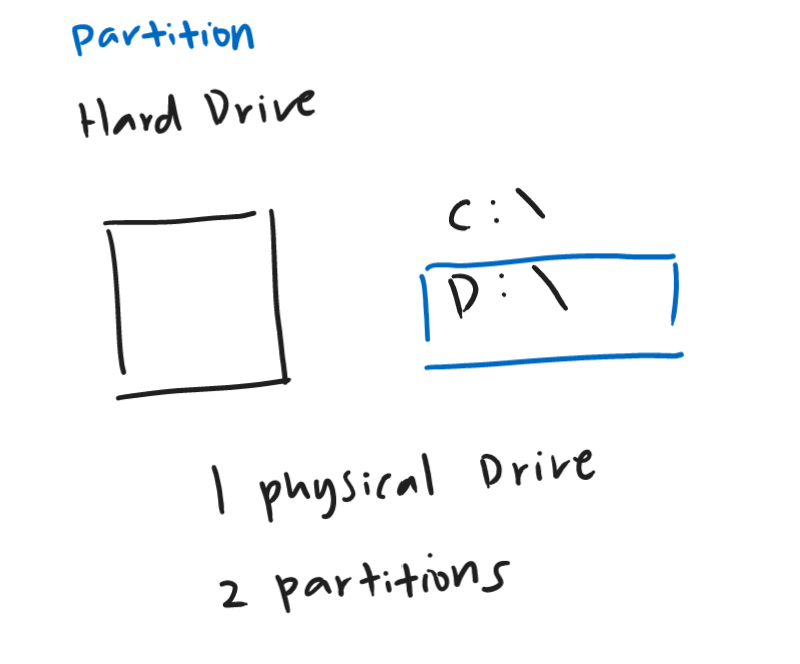 partition
Hard Drive
C:\
D:\
1 physical Drive
2 partitions